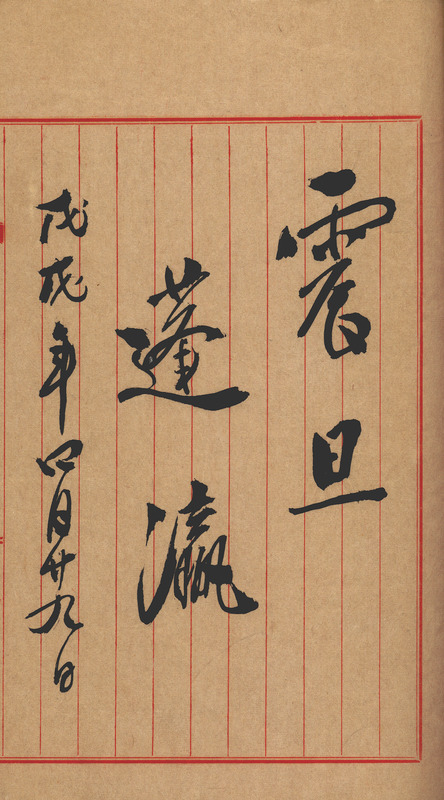 震旦
蓬瀛
戊戌年四月廿九日